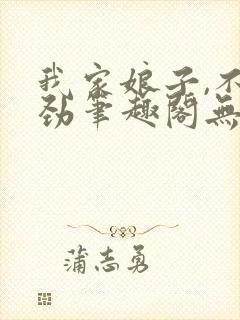 我家娘子,不
劲笔趣阁无
蒲志勇